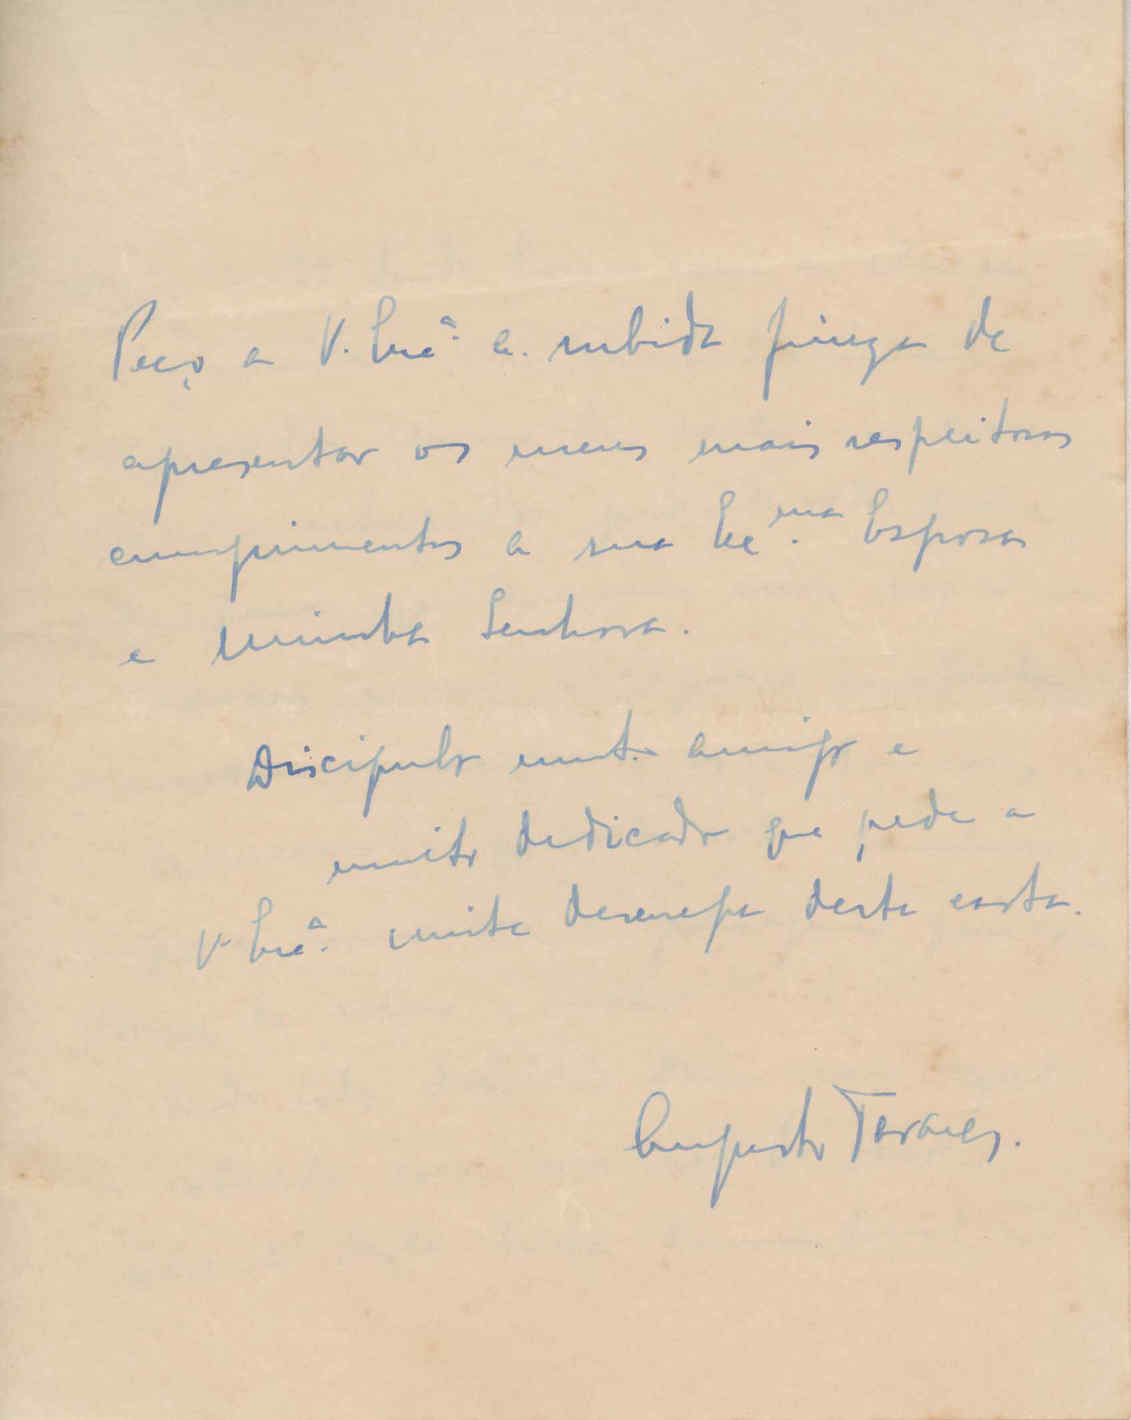 Peço a V. Exª. a subida fineza de
apresentar os meus mais respeitosos
cumprimentos a sua Exma. Esposa
e minha Senhora.
Discipulo muito amigo e
muito dedicado que pede a
V. Exª. muita desculpa desta carta.
Augusto Tavares.